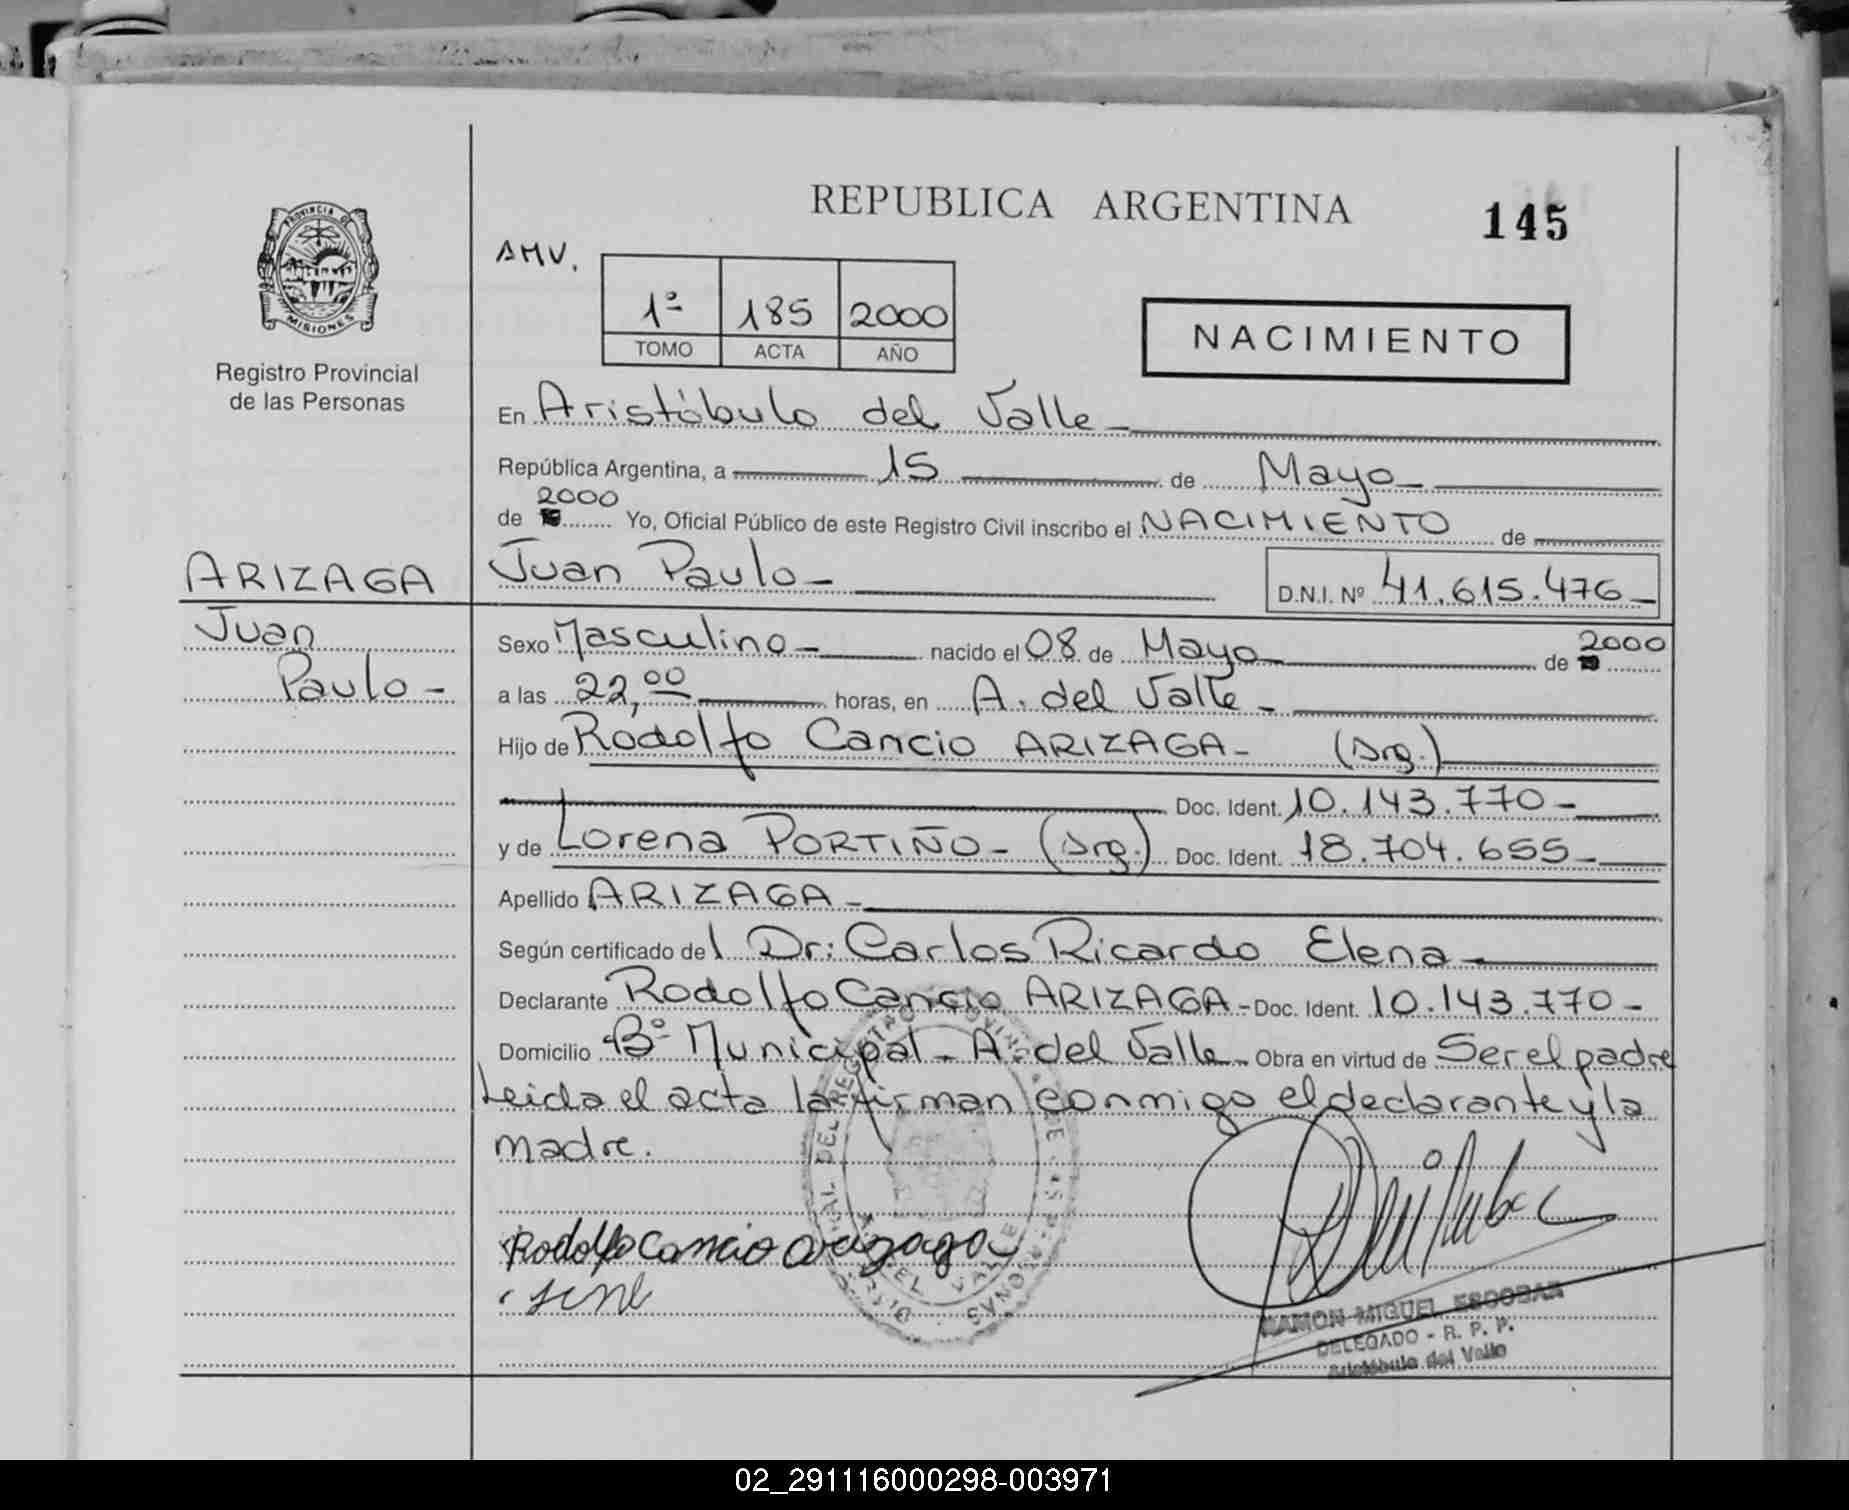 REPUBLICA ARGENTINA
145
AMV.
1º 185 2000
TOMO ACTA AÑO
NACIMIENTO
PROVINCIA DE MISIONES
Registro Provincial
de las Personas
En Aristóbulo del Valle
República Argentina, a 15 de Mayo
2000
de Yo, Oficial Público de este Registro Civil inscribo el NACIMIENTO de
ARIZAGA
Juan
Paulo
Juan Paulo
D.N.I. Nº 41.615.476
Sexo Masculino nacido el 08 de Mayo de 2000
a las 22,00 horas, en A. del Valle
Hijo de Rodolfo Cancio ARIZAGA (Arg.)
Doc. Ident. 10.143.770
y de Lorena PORTIÑO (Arg.) Doc. Ident. 18.704.655
Apellido ARIZAGA
Según certificado del Dr: Carlos Ricardo Elena
Declarante Rodolfo Cancio ARIZAGA Doc. Ident. 10.143.770
Domicilio Bº Municipal - A. del Valle Obra en virtud de Ser el padre
Leida el acta la firman conmigo el declarante y la
madre.
Rodolfo Cancio arizaga
RAMON MIGUEL ESCOBAR
DELEGADO - R. P. P.
Aristóbulo del Valle
02_291116000298-003971